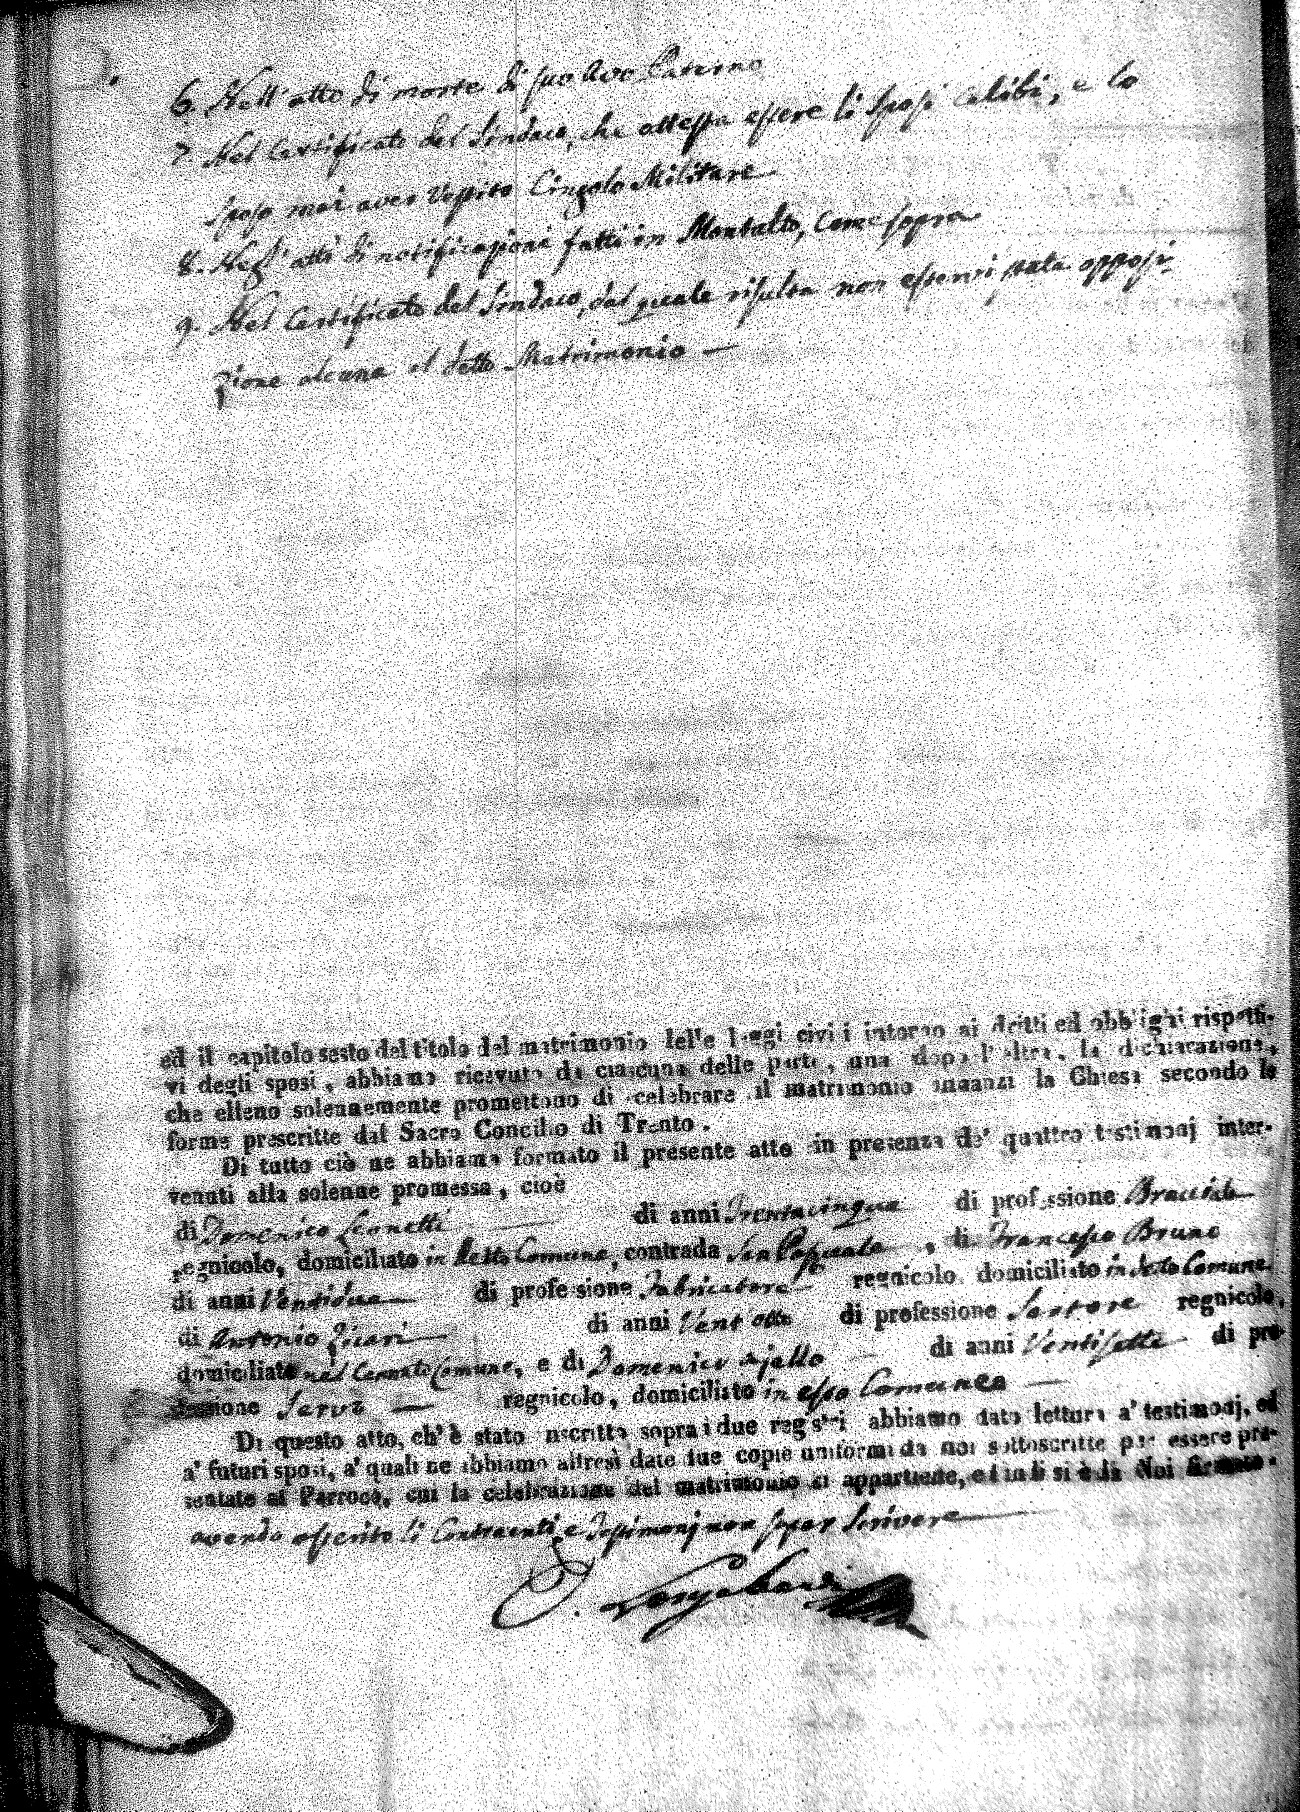 6. Nell'atto di morte di suo Avo Paterno
7. Nel Certificato del Sindaco, che attesta essere li Sposi celibi, e lo
Sposo mai aver vestito Cingolo Militare
8. Negl'atti di notificazioni fatti in Montalto, Come sopra
9. Nel Certificato del Sindaco, dal quale risulta non esservi stata opposi-
zione alcuna al detto Matrimonio —
ed il capitolo sesto del titolo del matrimonio delle leggi civili intorno ai dritti ed obblighi rispetti-
vi degli sposi, abbiamo ricevuto da ciascuna delle parti, una dopo l'altra, la dichiarazione,
che elleno solennemente promettono di celebrare il matrimonio innanzi la Chiesa secondo le
forme prescritte dal Sacro Concilio di Trento.
Di tutto ciò ne abbiamo formato il presente atto in presenza de' quattro testimonj inter-
venuti alla solenne promessa, cioè
di Domenico Leonetti — di anni Trentacinque di professione Bracciale
regnicolo, domiciliato in detto Comune, contrada San Pasquale, di Francesco Bruno
di anni Ventidue — di professione Fabricatore — regnicolo domiciliato in detto Comune
di Antonio — di anni Vent'otto di professione Sartore regnicolo,
domiciliato nel Cennato Comune, e di Domenico Ajello — di anni Ventisette — di pro-
fessione — regnicolo, domiciliato in esso Comune —
Di questo atto, ch'è stato inscritto sopra i due registri abbiamo dato lettura a' testimonj, ed
a' futuri sposi, a' quali ne abbiamo altresì date due copie uniformi da noi sottoscritte per essere pre-
sentate al Parroco, cui la celebrazione del matrimonio si appartiene, e indi si è da Noi firmato.
avendo asserito li Contraenti, e Testimonj non saper scrivere —
Longobardi